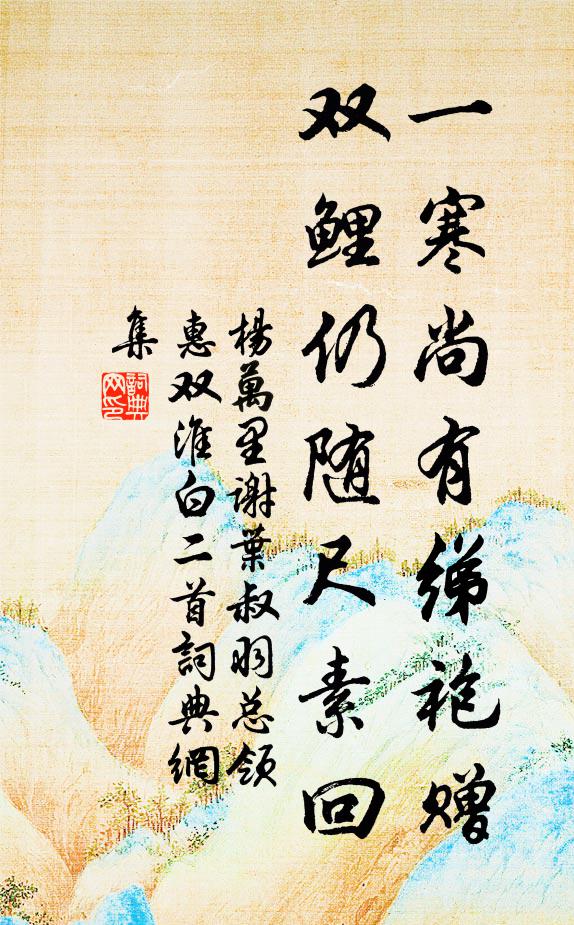 一寒尚有绨袍赠
双鲤仍随尺素回
楊萬里謝葉叔羽总领
惠双淮白二首詞典網
集
詞典
网印